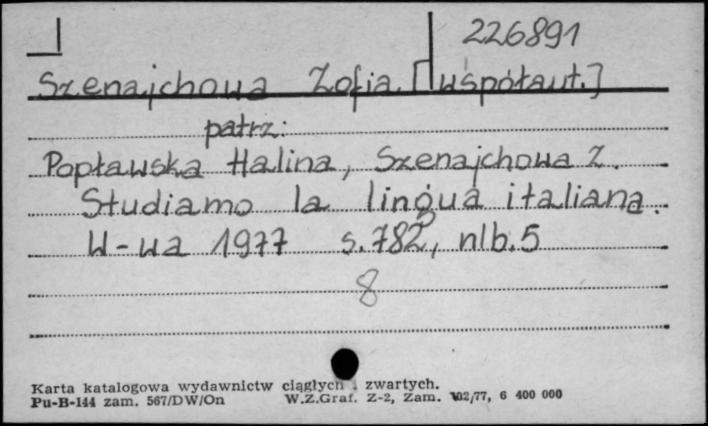 226891
Szenajchowa Zofia [współaut.]
patrz:
Popławska Halina, Szenajchowa Z.
Studiamo la lingua italiana.
W-wa 1977 s. 782, nlb. 5
8
Karta katalogowa wydawnictw ciągłych i zwartych.
Pu-B-144 zam. 567/DW/On W.Z.Graf. Z-2, Zam. 102/77, 6 400 000